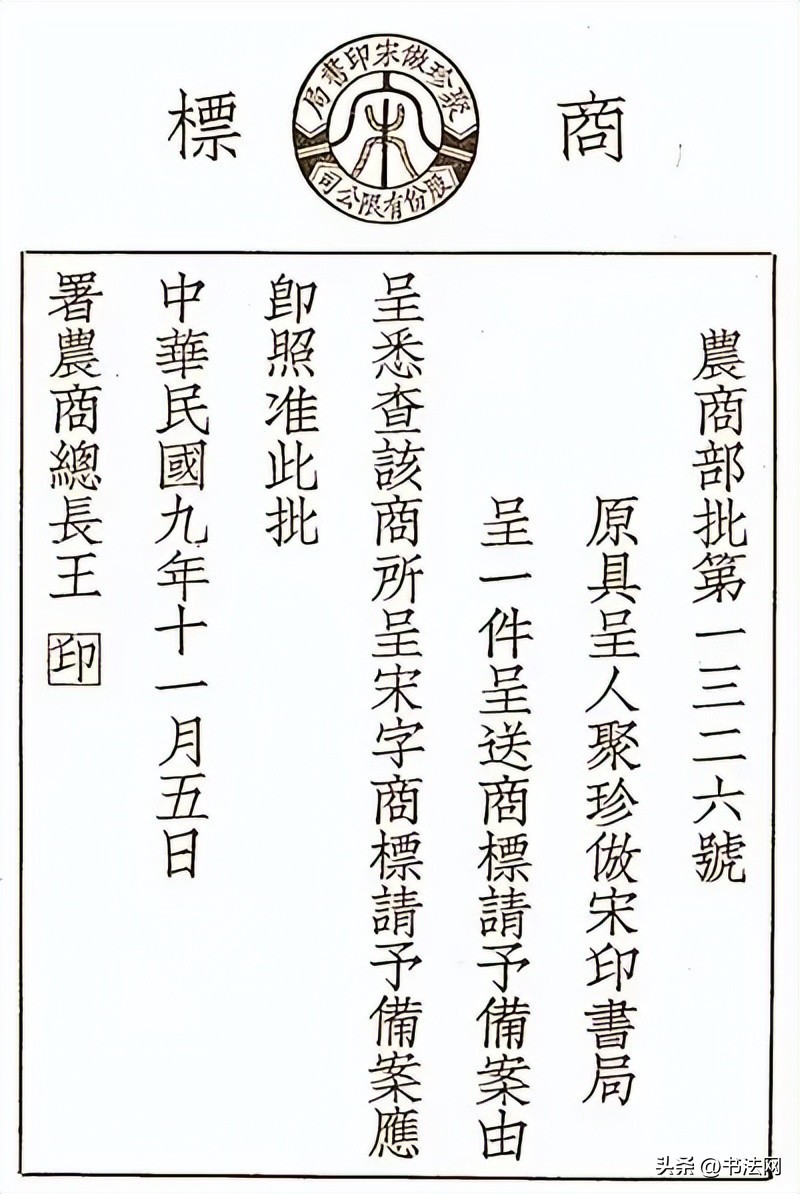 商標
聚珍倣宋印書局
股份有限公司
宋
農商部批第一三二六號
原具呈人聚珍倣宋印書局
呈一件呈送商標請予備案由
呈悉查該商所呈宋字商標請予備案應
卽照准此批
中華民國九年十一月五日
署農商總長王 印
头条 @书法网